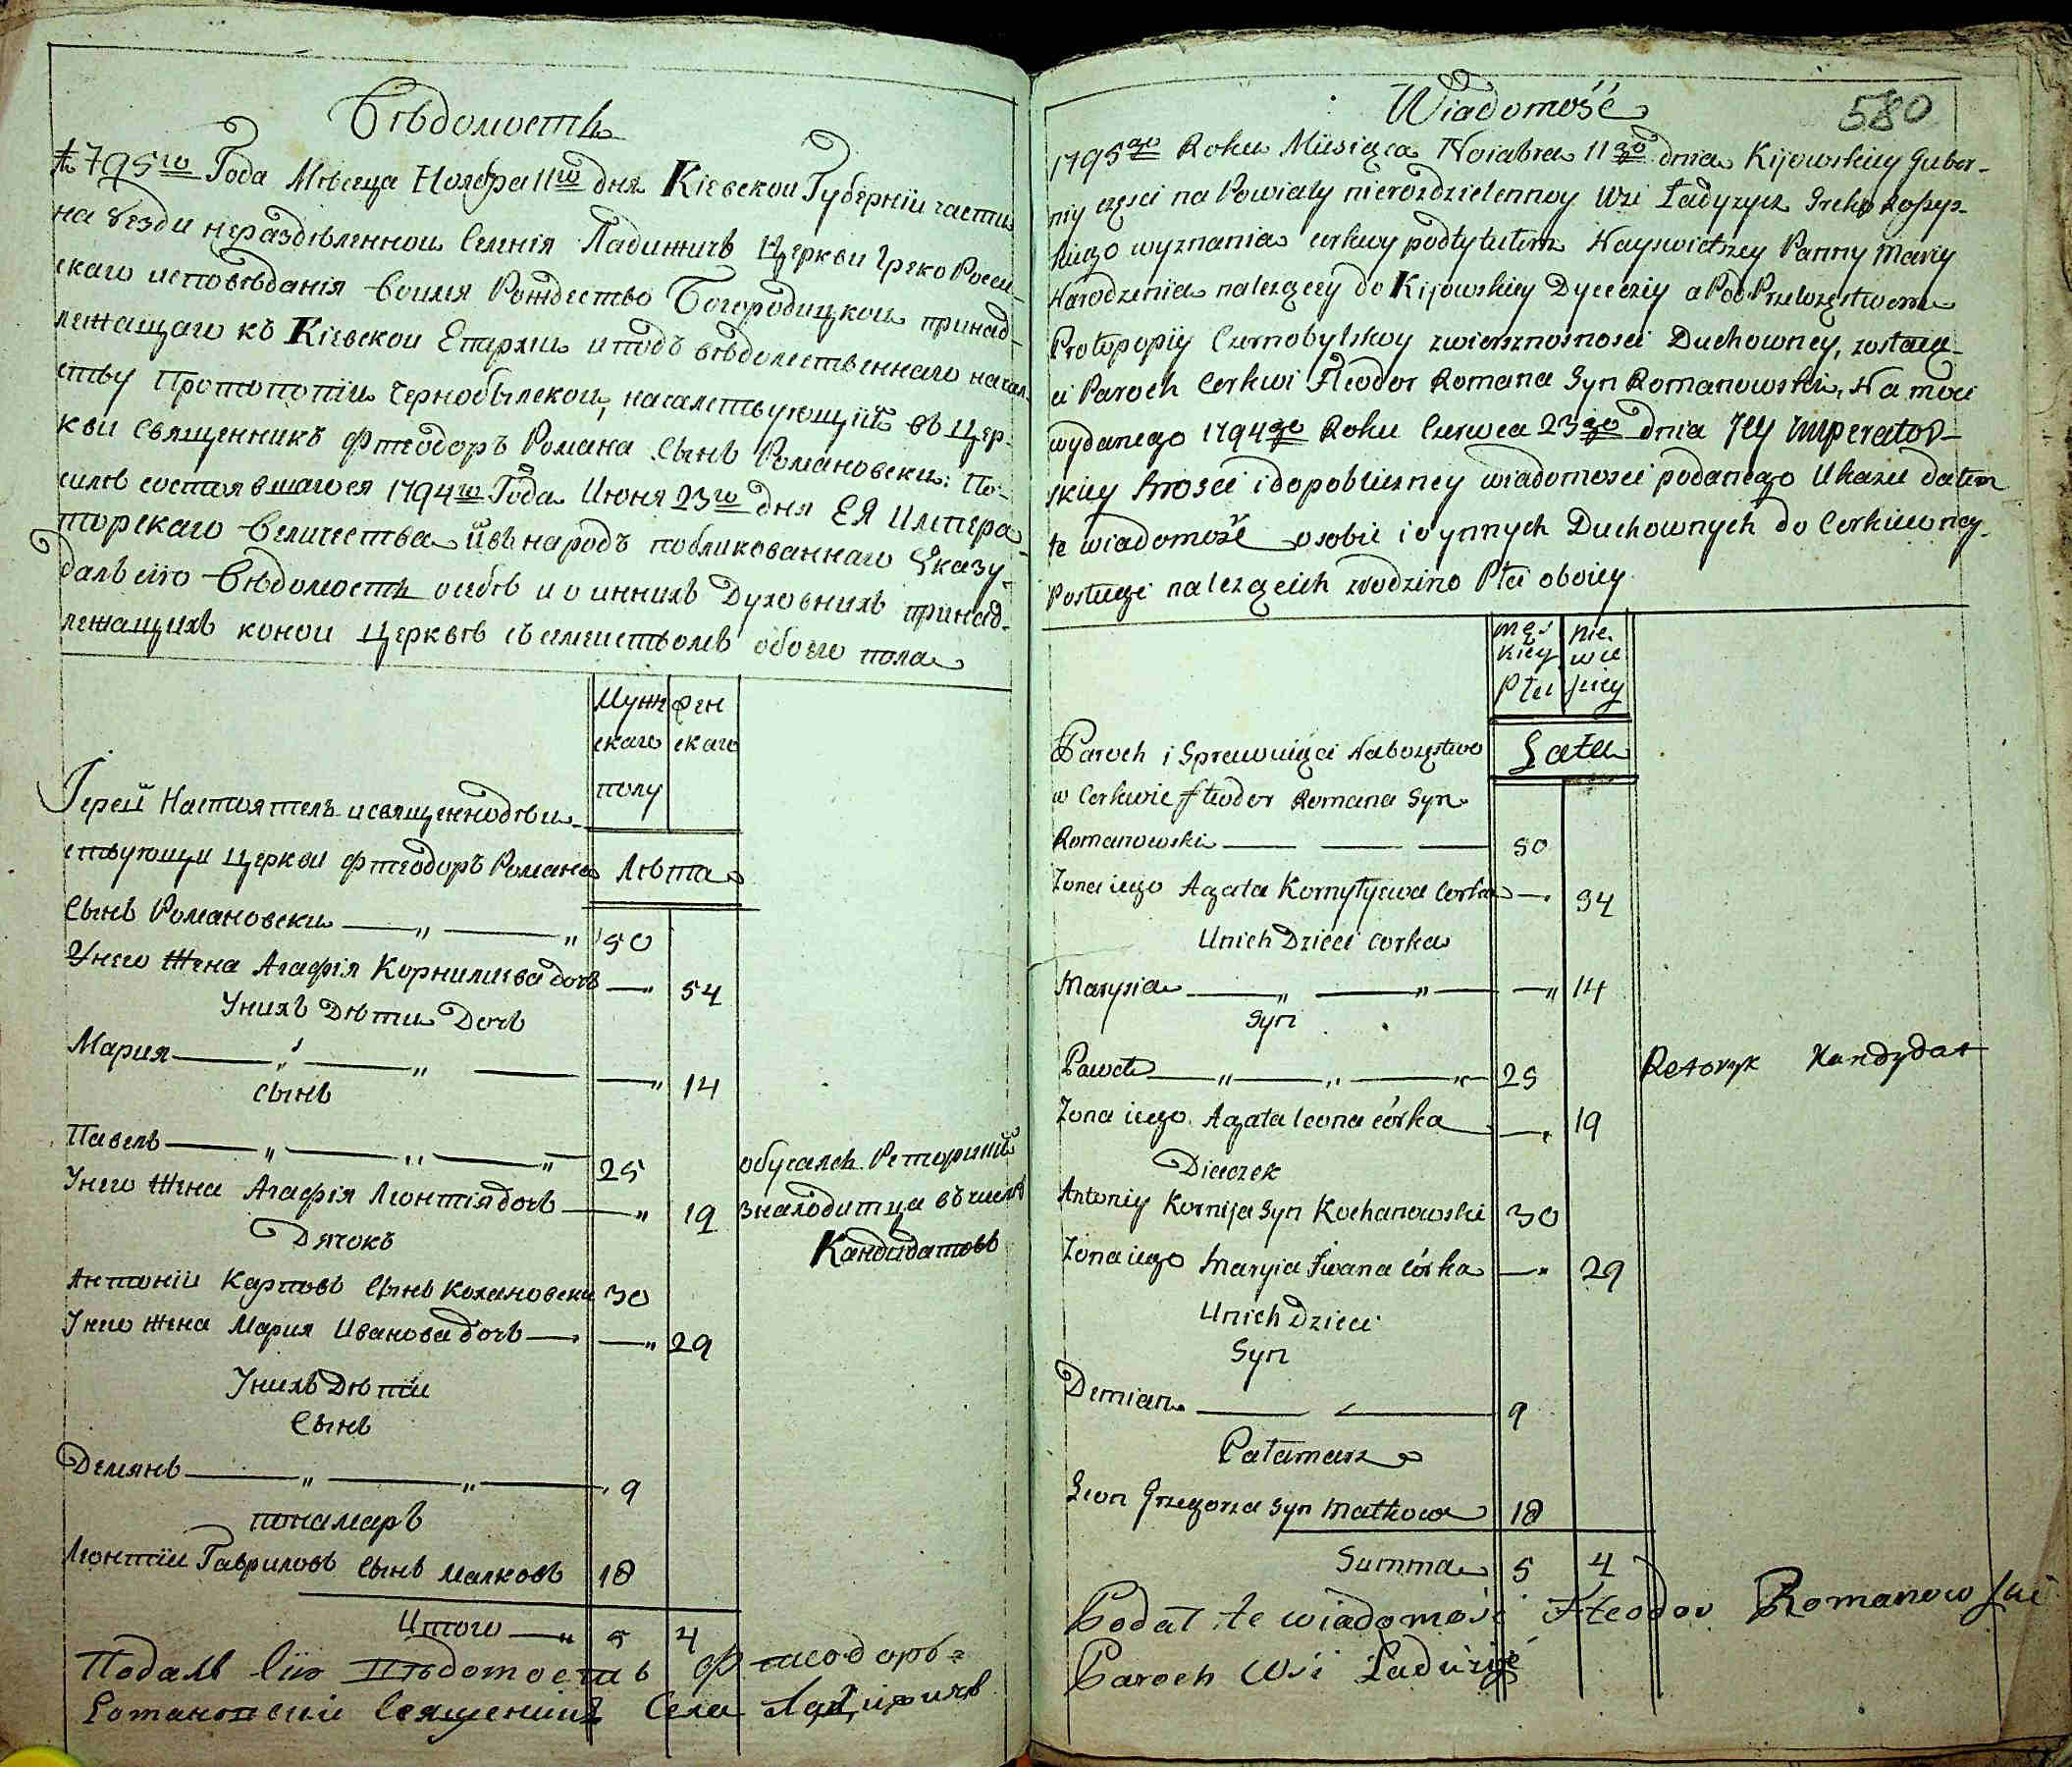 Вѣдомость
1795го Года Мѣсеца Ноября 11го дня Кіевской Губерніи части
на уезди нераздѣленной Селенія Ладижичъ Церкви Греко Росси-
скаго исповѣданія воимя Рождество Богородицкой принад-
лежащаго къ Кіевской Епархіи иподъ вѣдомственнаго начал-
ству Протопопіи Чернобылской, насалствующій въ Цер-
кви Священникъ Фтеодоръ Романа Сынъ Романовски: По-
силѣ состоявшагося 1794го Года Июня 23го дня ЕЯ Импера-
торскаго Величества ивънародъ побликованнаго Указу
далъ сію Вѣдомость осебѣ и о иннихъ Духовнихъ принад-
лежащихъ коной Церквѣ съсемействомъ обоего пола
Мужескаго полу Женскаго
Іерей Настоятель исвященнодѣи-
ствующи Церкви Фтеодоръ Романа Лѣта
Сынъ Романовски — „ — „ 50
Унего Жена Агафія Корнилиева дочъ — „ 54
Унихъ Дѣти Дочъ
Мария — „ — „ — — „ 14
Сынъ
Павелъ — „ — „ — „ 25 обучалсь Реторики
Унего Жена Агафія Леонтія дочъ — — „ 19 знаходитца въчислѣ
Дячокъ Кандидатовъ
Антоніи Карповъ Сынъ Кохановски 30
Унего Жена Мария Иванова дочъ — — „ 29
Унихъ Дѣти
Сынъ
Демянъ — „ — „ — 9
пономаръ
Леонтіи Гавриловъ Сынъ Малковъ 18
Итого — „ 5 4
Подалъ сію Вѣдомость Фтеодоръ
Романовский Священникъ Села Ладижичъ
Wiadomość 580
1795go Roku Miesiąca Noiabra 11go dnia Kijowskiey Guber-
niy części na Powiaty nierozdzielenney Wsi Ładyzycz Greko Rossyi-
skiego wyznania cerkwy podtytułem Nayświetszey Panny Maryi
Narodzenia nalezącey do Kijowskiey Dyecezyi a Pod Przełozęstwem
Protopopiy Czernobylskoy zwiersznosności Duchowney, zostaią-
ci Paroch Cerkwi Fteodor Romana Syn Romanowski, Na mocy
wydanego 1794go Roku Czerwca 23go dnia Jey Imperator-
skiey Mości i dopobliczney wiadomości podanego Ukazu dałem
te wiadomość osobie i o ynnych Duchownych do Cerkiewney
Posługi nalezących zrodzino Płci oboiey
męskiey Płci niewieściey
Paroch i Sprawuiąci Nabozęstwo Lata
w Cerkwie Fteodor Romana Syn
Romanowski — — — 50
Zona iego Agata Kornyłyiewa Corka — 54
Unich Dzieci corka
Marysia — „ — „ — — „ 14
Syn
Paweł — „ — „ — „ 25 Retoryk Kandydat
Zona iego Agata Leona córka — 19
Diaczek
Antoniy Kornija Syn Kochanowski 30
Zona iego Maryia Iwana córka — 29
Unich Dzieci
Syn
Demian — — 9
Pałamarz
Leon Grzegorza Syn Małkow 18
Summa 5 4
Podał te wiadomość Fteodor Romanowski
Paroch Wsi Ładuzyć